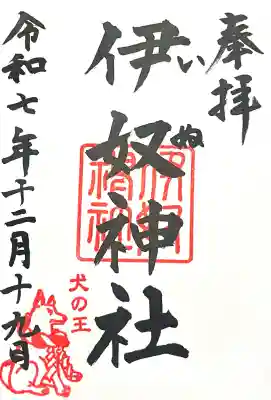 奉拝
伊奴神社
いぬ
令和七年十二月十九日
犬の王